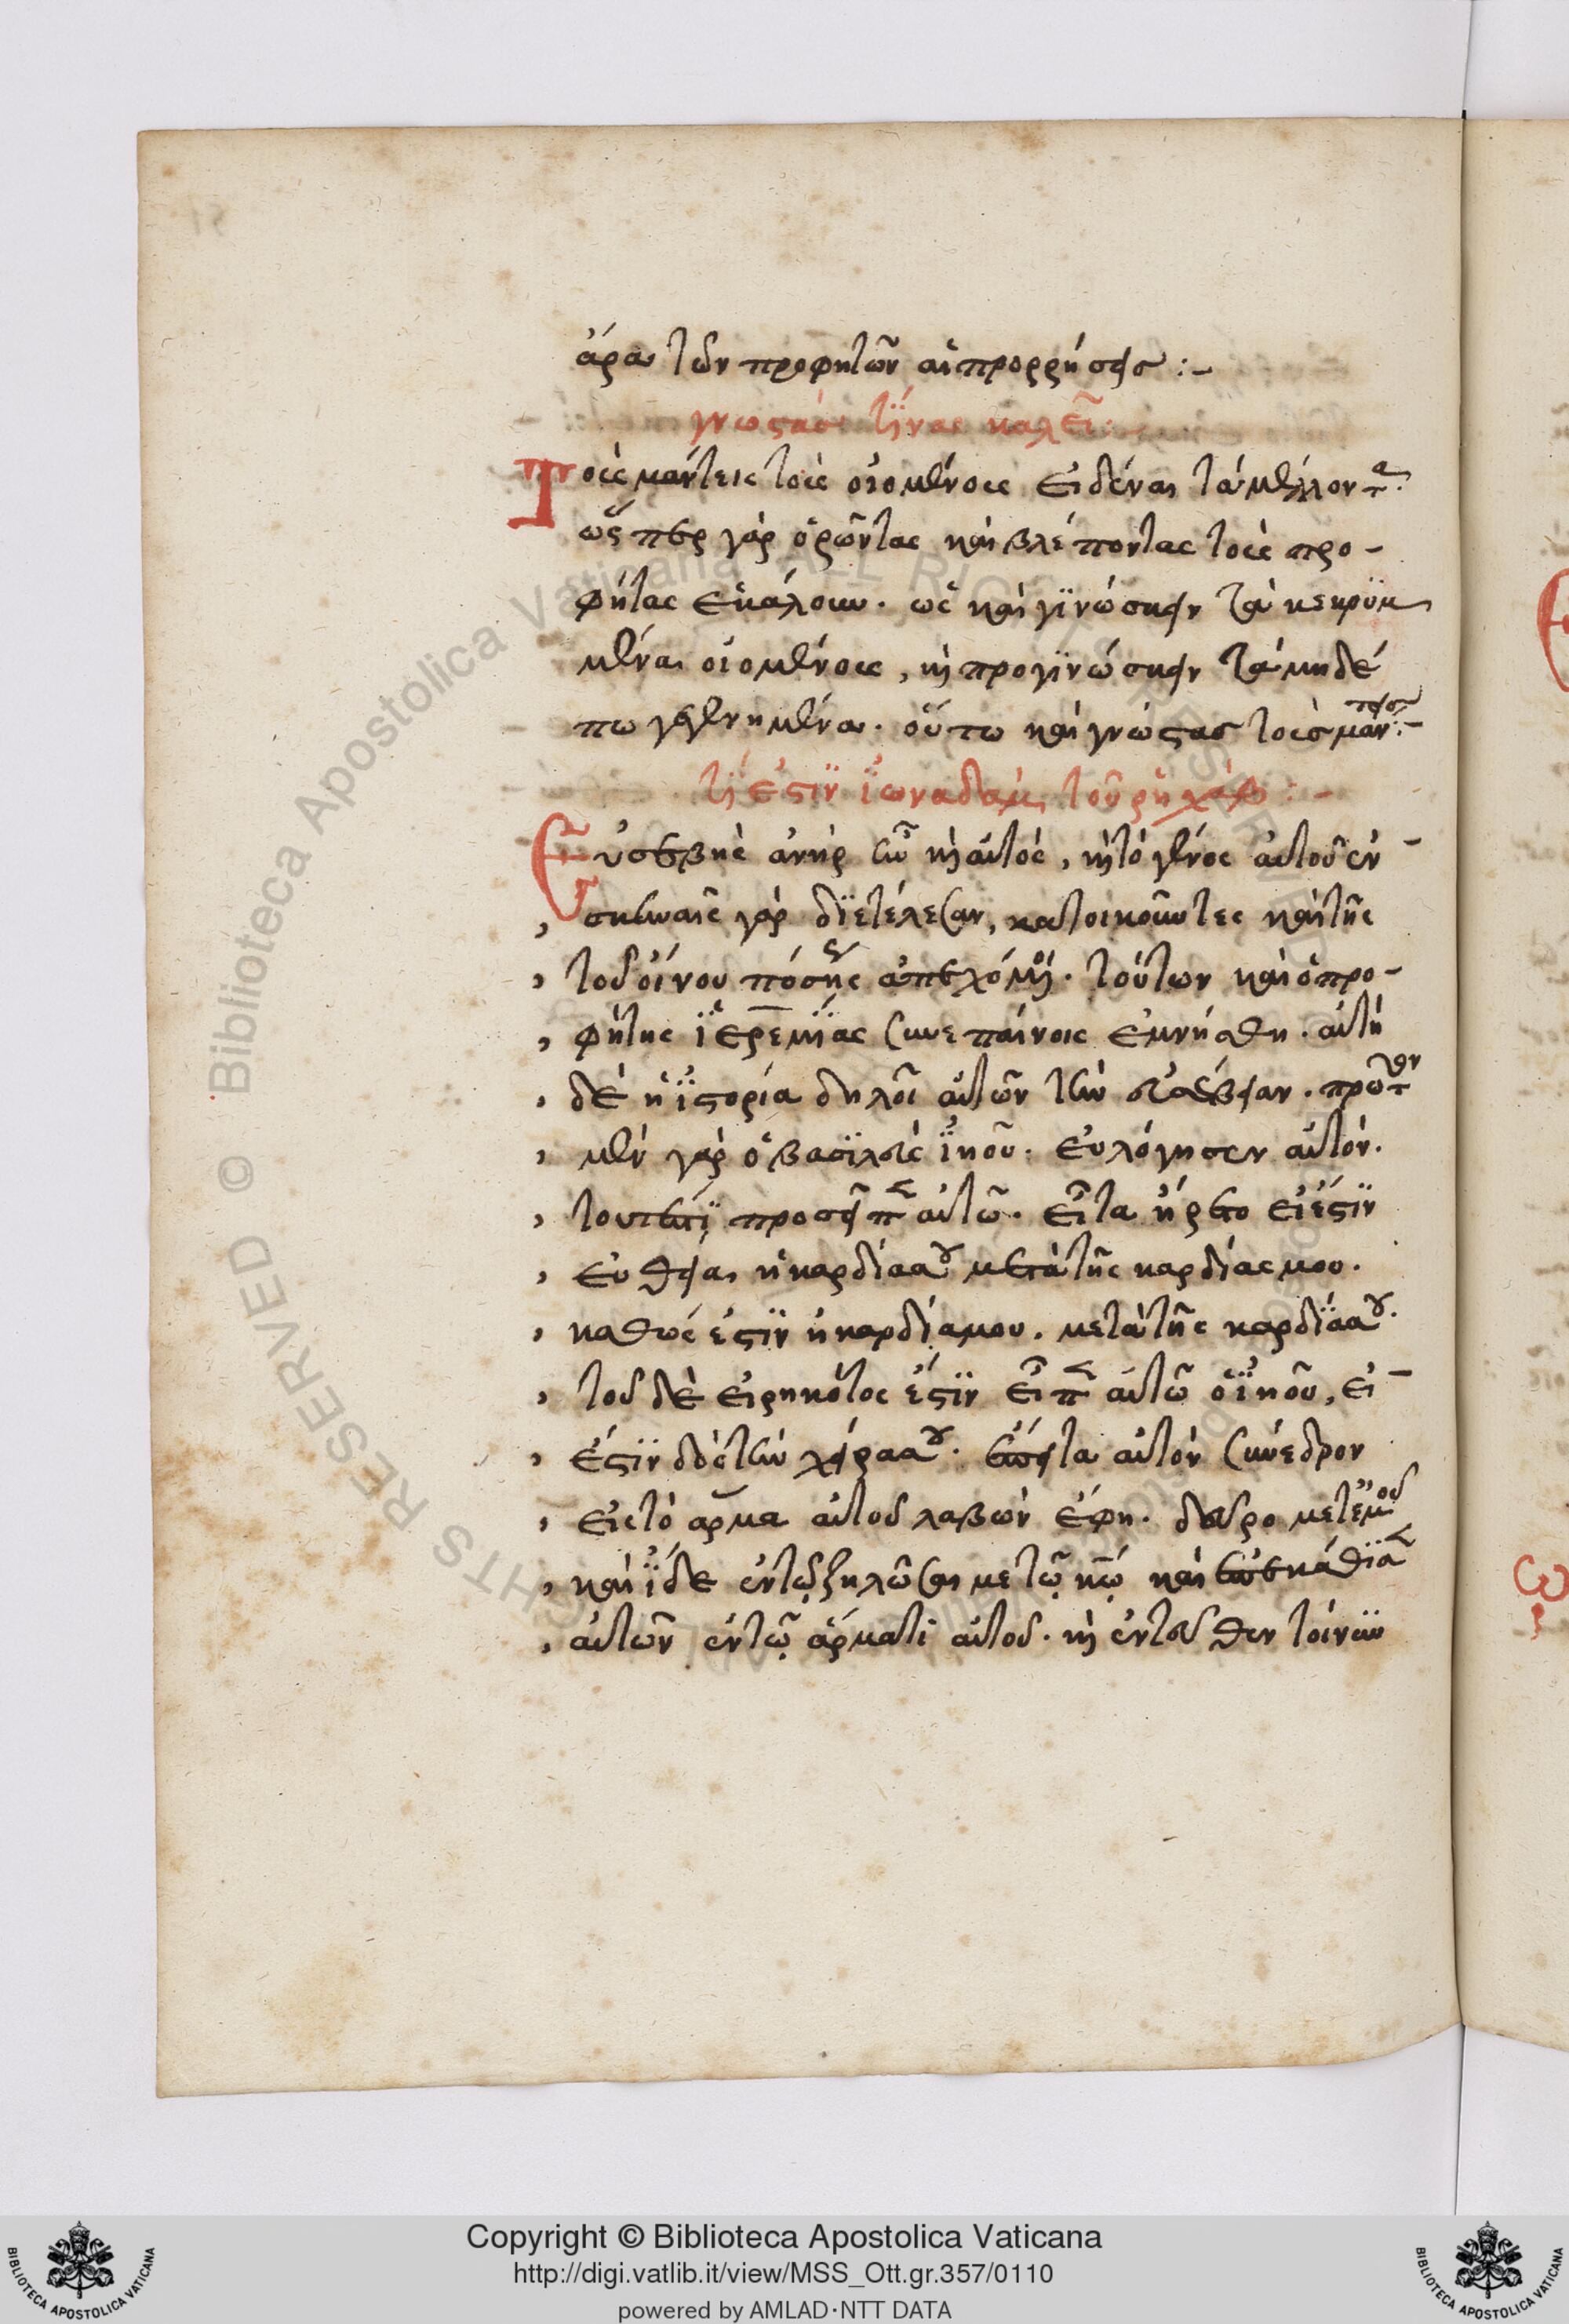 ἄρα τῶν προφητῶν αἱ προρρήσεις :-
γνώστας τίνας καλεῖ :
Τοὺς μάντεις τοὺς οἰομένους εἰδέναι τὰ μέλλοντα.
ὥσπερ γὰρ ὁρῶντας καὶ βλέποντας τοὺς προ-
φήτας ἐκάλουν. ὡς καὶ γϊνώσκειν τὰ κεκρϋμ
μένα οἰομένους, κὶ προγϊνώσκειν τὰ μηδέ
πω γεγενημένα. οὕτω καὶ γνώστας τοὺς μάντεις :-
τί ἐστϊν ϊωναδάμ τοῦ ρηχάβ :-
Εὐσεβὴς ἀνὴρ ἦν κὶ αὐτὸς, κὶ τὸ γένος αὐτοῦ ἐν
σκηναῖς γὰρ δϊετέλεσαν, κατοικοῦντες καὶ τῆς
τοῦ οἴνου πόσεως ἀπεχόμενοι. τούτων καὶ ὁ προ-
φήτης ϊερεμϊας σὺν ἐπαίνοις ἐμνήσθη. αὐτὴ
δὲ ἡ ϊστορία δηλοῖ αὐτῶν τὴν εὐσέβειαν. πρῶτον
μὲν γὰρ ὁ βασϊλεὺς ϊηοῦ. εὐλόγησεν αὐτόν.
τουτέστϊ προσεῖπεν αὐτῶ. εἶτα ἤρετο εἰ ἔστϊν
εὐθεῖα ἡ καρδία σου μετὰ τῆς καρδίας μου.
καθὼς ἐστϊν ἡ καρδία μου. μετὰ τῆς καρδϊας σου.
τοῦ δὲ εἰρηκότος ἔστϊν εἶπεν αὐτῶ ὁ ϊηοῦ, εἰ
ἔστϊν δὸς τὴν χεῖρα σου. ἔπειτα αὐτὸν σύνεδρον
εἰς τὸ ἅρμα αὐτοῦ λαβὼν ἔφη. δεῦρο μετ ἐμοῦ
καὶ ϊδε ἐν τῷ ζηλῶσαι με τῷ κῷ καὶ ἐπεκάθϊσεν
αὐτὸν ἐν τῷ ἅρματι αὐτοῦ. κὶ ἐντεῦθεν τοίνυν
Copyright © Biblioteca Apostolica Vaticana
http://digi.vatlib.it/view/MSS_Ott.gr.357/0110
powered by AMLAD·NTT DATA